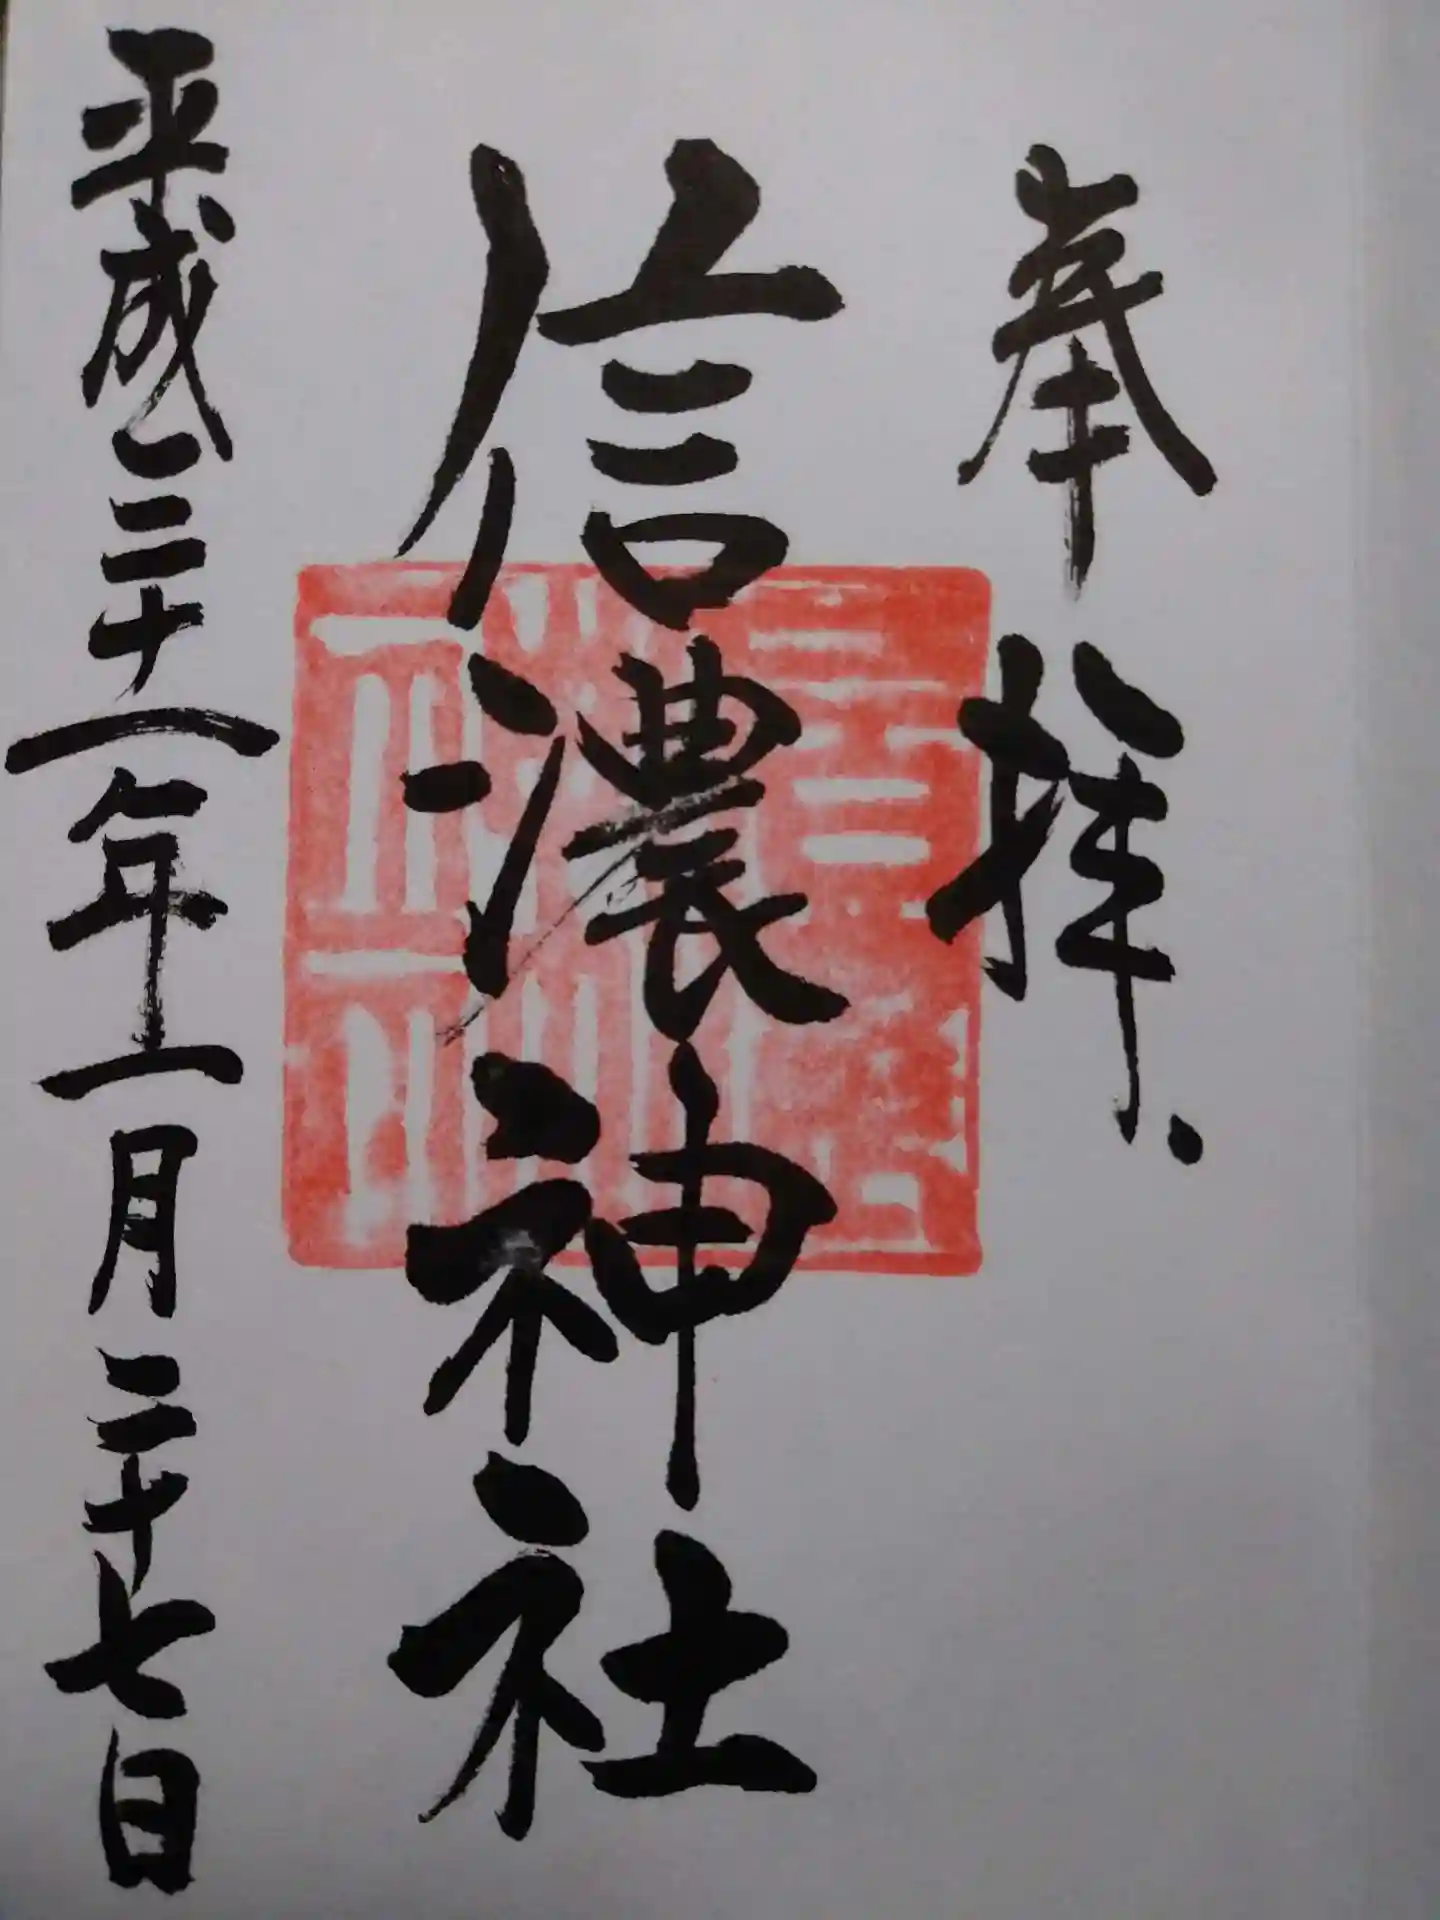 奉拝
信濃神社
平成三十一年一月二十七日